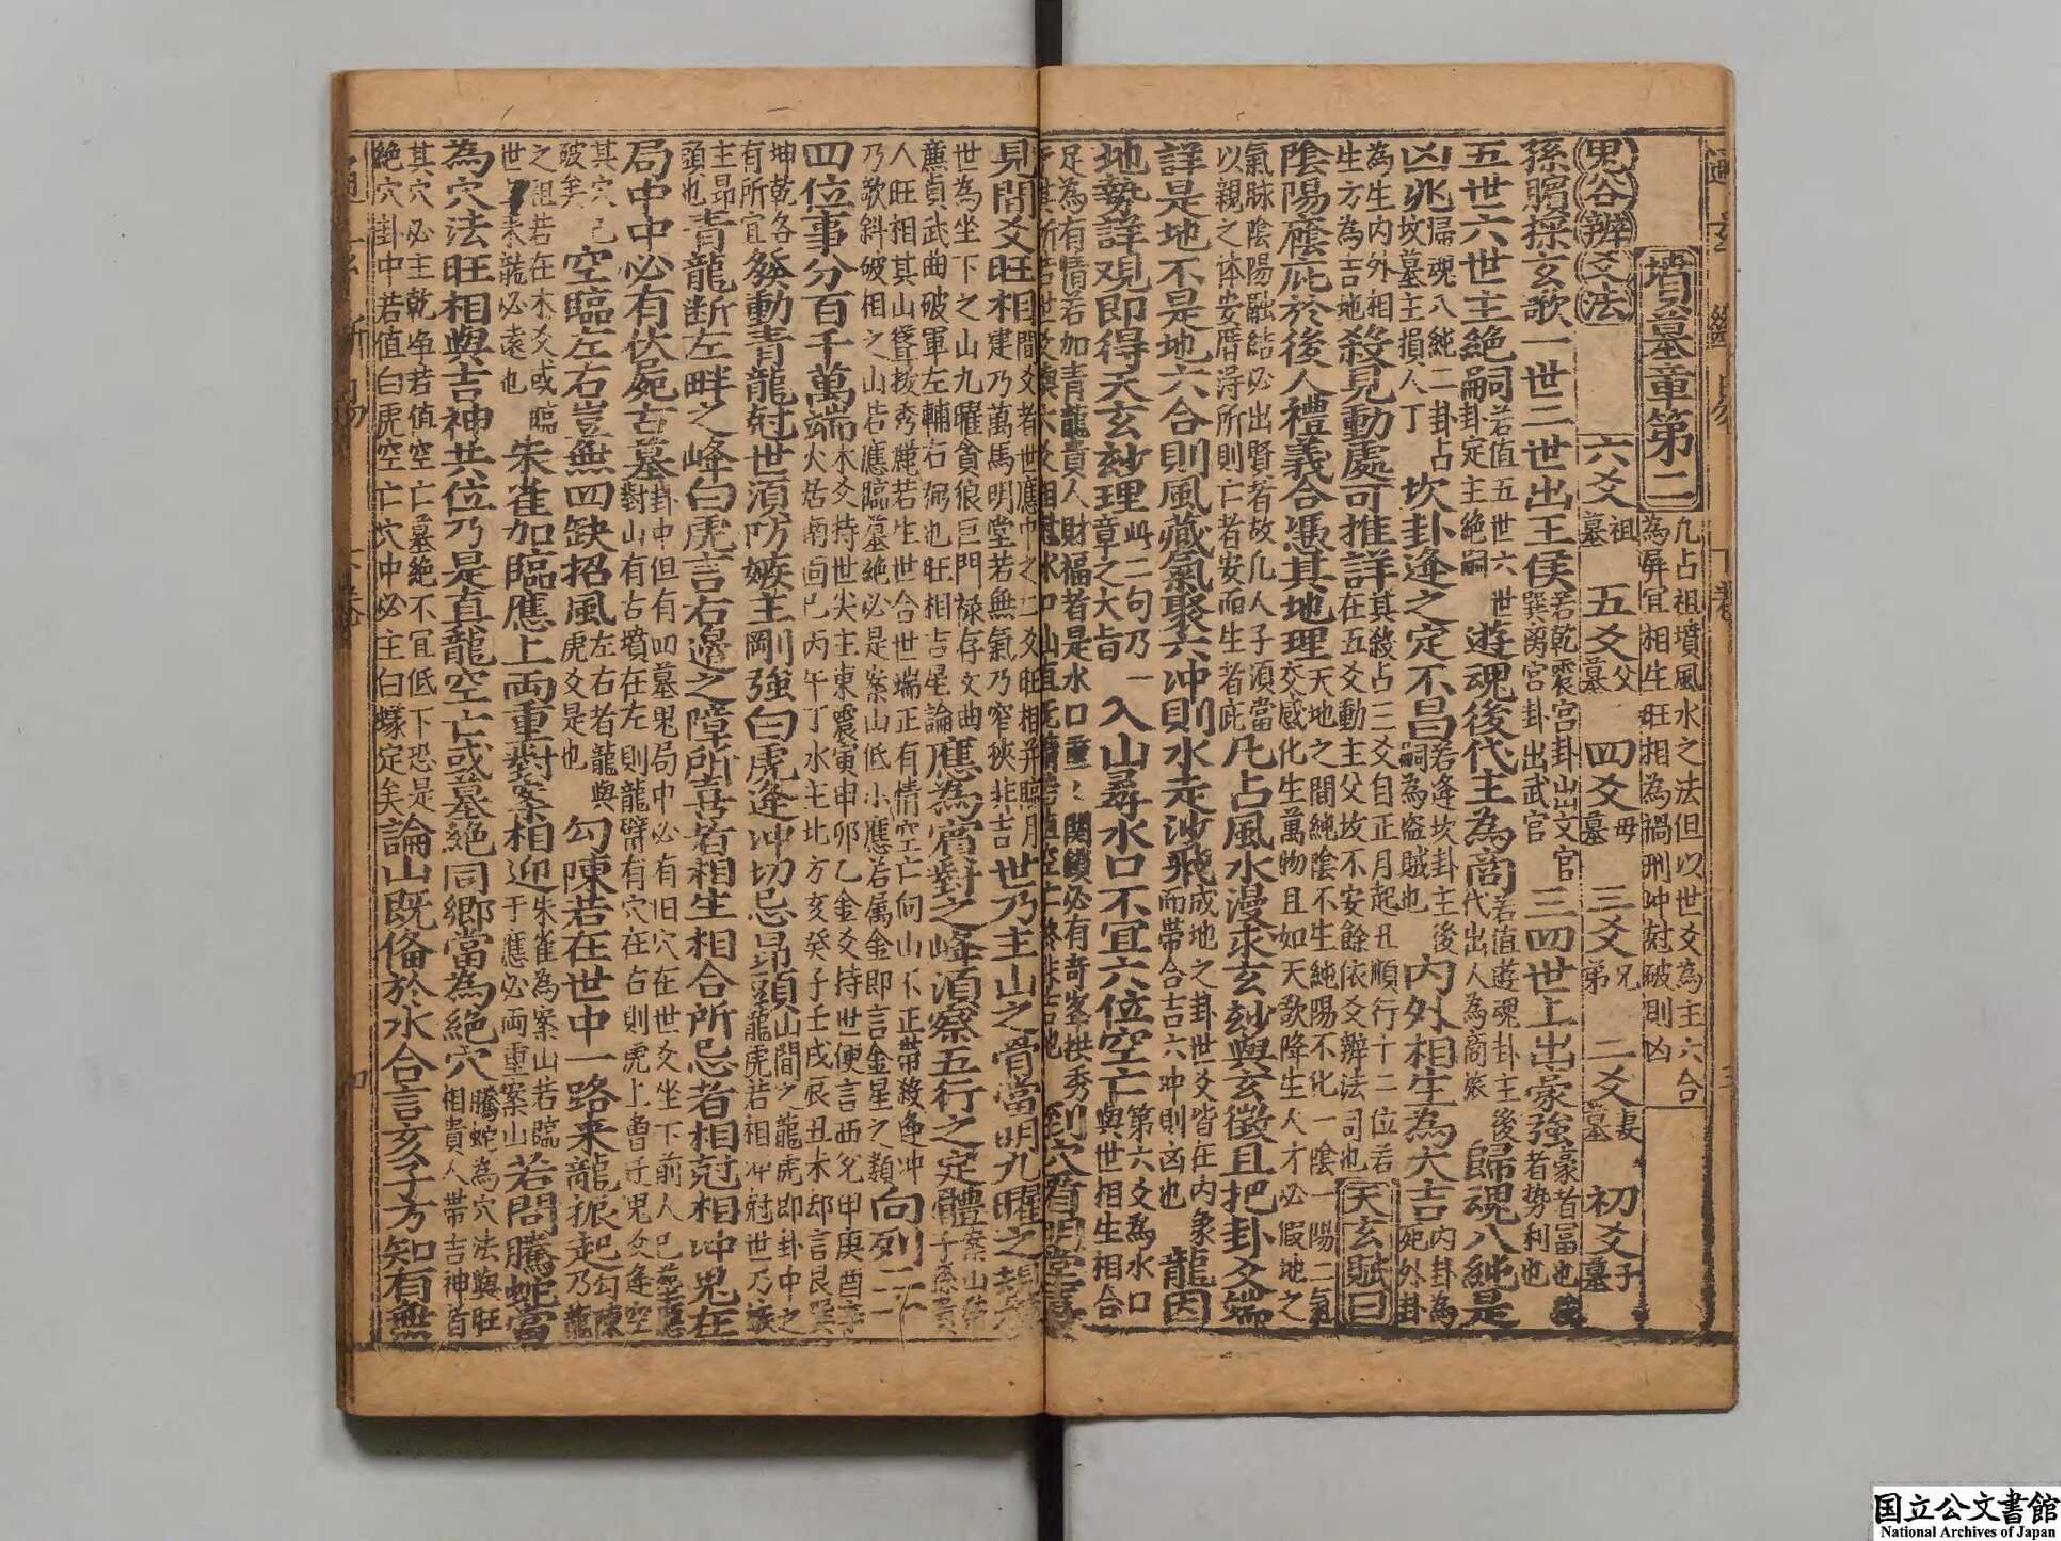 墳墓章第二 凡占祖墳風水之法但以世爻為主六合為屏宜相生旺相為禍刑冲尅破則凶
鬼谷辨爻法 六爻祖墓 五爻父墓 四爻母墓 三爻兄弟 二爻妻墓 初爻子墓
孫臏探玄歌一世二世出王侯若乾震宮卦出文官巽离宮卦出武官三四世上出豪強豪者冨也強者势利也
五世六世主絶嗣若值五世六世卦定主絶嗣遊魂後代主為商若值遊魂卦主後代出人為商旅歸魂八純是
凶兆歸魂八純二卦占坟墓主損人丁坎卦逢之定不昌若逢坎卦主後嗣為盗賊也内外相生為大吉内卦為死外卦
為生内外相生方為吉地殺見動處可推詳其殺占三爻自正月起丑順行十二位若在五爻動主父坟不安餘依爻辨法司也天玄賦曰
陰陽廕庇於後人禮義合憑其地理天地之間純陰不生純陽不化一陰一陽二氣交感化生萬物且如天欲降生人才必假地之
氣脉陰陽融結必出賢者故凡人子須當以親之体安厝得所則亡者安而生者庇凡占風水漫求玄妙與玄微且把卦爻端
詳是地不是地六合則風藏氣聚六冲則水走沙飛成地之卦世爻皆在内象而帶合吉六冲則凶也龍因
地勢詳观即得天玄妙理此二句乃一章之大旨入山尋水口不宜六位空亡第六爻為水口與世相生相合
足為有情若加青龍貴人財福者是水口重々関鎖必有奇峯拱秀到穴看明堂
見間爻旺相間爻者世應中之二爻旺相并臨月建乃萬馬明堂若無氣乃窄狹非吉世乃主山之骨當明九曜之
世為坐下之山九曜貪狼巨門禄存文曲廉貞武曲破軍左輔右弼也旺相吉星論應為賓對之峰須察五行之定體
人旺相其山聳拔秀麗若生世合世端正有情空亡向山不正帶殺逢冲乃欹斜破相之山若應臨墓絶必是案山低小應若属金即言金星之類向列二
四位事分百千萬端木爻持世尖主東震寅甲卯乙金爻持世便言西兌申庚酉辛火居南向巳丙午丁水主北方亥癸子壬戌辰丑未却言艮巽
坤乾各有所宜發動青龍尅世須防嫉主剛強白虎逢冲切忌昂頭山間之龍虎即卦中之龍虎若相冲尅世乃嫉
主昂頭也青龍断左畔之峰白虎言右邊之障所喜者相生相合所忌者相尅相冲鬼在
局中中必有伏屍古墓卦中但有四墓鬼局中必有旧穴在世爻坐下前人已葬應對山有古墳在左則龍臂有穴在右則虎上曾迁鬼爻逢空
其穴已破矣空臨左右豈無四缺招風左右者龍與虎爻是也勾陳若在世中一路来龍振起勾陳乃龍
之祖若在木爻或臨世上来龍必遠也朱雀加臨應上両重對案相迎朱雀為案山若臨于應必両重案山若問騰蛇當
為穴法旺相與吉神共位乃是真龍空亡或墓絶同鄉當為絶穴騰蛇為穴法與旺相貴人帶吉神者
其穴必主乾净若值空亡墓絶不宜低下恐是絶穴卦中若值白虎空亡穴中必主白蟻定矣論山既備於水合言亥子方知有無
国立公文書館
National Archives of Japan